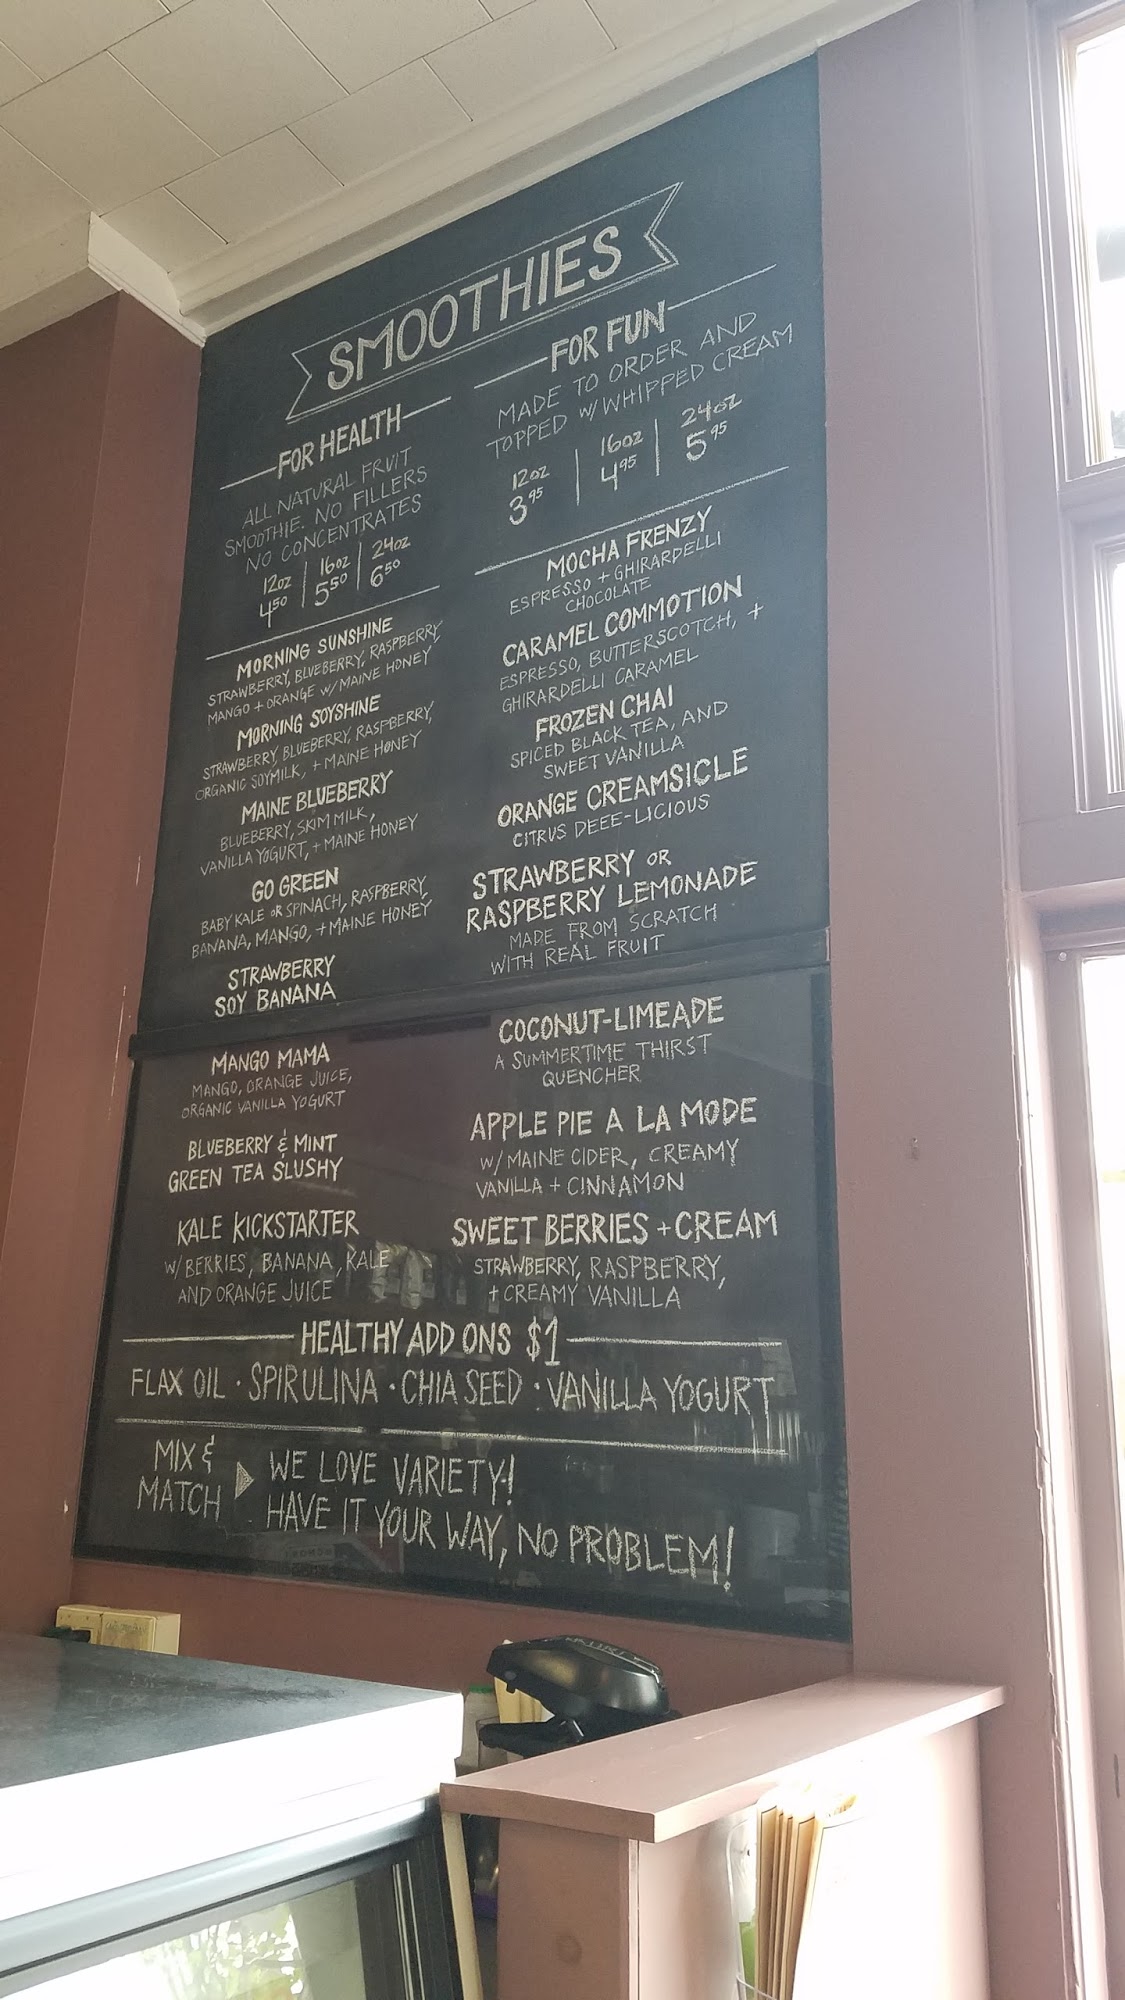 SMOOTHIES
FOR HEALTH
ALL NATURAL FRUIT
SMOOTHIE. NO FILLERS
NO CONCENTRATES
12oz | 16oz | 24oz
4.50 | 5.50 | 6.50
MORNING SUNSHINE
STRAWBERRY, BLUEBERRY, RASPBERRY,
MANGO + ORANGE W/MAINE HONEY
MORNING SOYSHINE
STRAWBERRY, BLUEBERRY, RASPBERRY,
ORGANIC SOYMILK, + MAINE HONEY
MAINE BLUEBERRY
BLUEBERRY, SKIM MILK,
VANILLA YOGURT, + MAINE HONEY
GO GREEN
BABY KALE OR SPINACH, RASPBERRY,
BANANA, MANGO, + MAINE HONEY
STRAWBERRY
SOY BANANA
MANGO MAMA
MANGO, ORANGE JUICE,
ORGANIC VANILLA YOGURT
BLUEBERRY & MINT
GREEN TEA SLUSHY
KALE KICKSTARTER
W/BERRIES, BANANA, KALE
AND ORANGE JUICE
FOR FUN
MADE TO ORDER AND
TOPPED W/WHIPPED CREAM
12oz | 16oz | 24oz
3.95 | 4.95 | 5.95
MOCHA FRENZY
ESPRESSO + GHIRARDELLI
CHOCOLATE
CARAMEL COMMOTION
ESPRESSO, BUTTERSCOTCH, +
GHIRARDELLI CARAMEL
FROZEN CHAI
SPICED BLACK TEA, AND
SWEET VANILLA
ORANGE CREAMSICLE
CITRUS DEEE-LICIOUS
STRAWBERRY OR
RASPBERRY LEMONADE
MADE FROM SCRATCH
WITH REAL FRUIT
COCONUT-LIMEADE
A SUMMERTIME THIRST
QUENCHER
APPLE PIE A LA MODE
W/MAINE CIDER, CREAMY
VANILLA + CINNAMON
SWEET BERRIES + CREAM
STRAWBERRY, RASPBERRY,
+ CREAMY VANILLA
HEALTHY ADD ONS $1
FLAX OIL · SPIRULINA · CHIA SEED · VANILLA YOGURT
MIX &
MATCH
WE LOVE VARIETY!
HAVE IT YOUR WAY, NO PROBLEM!